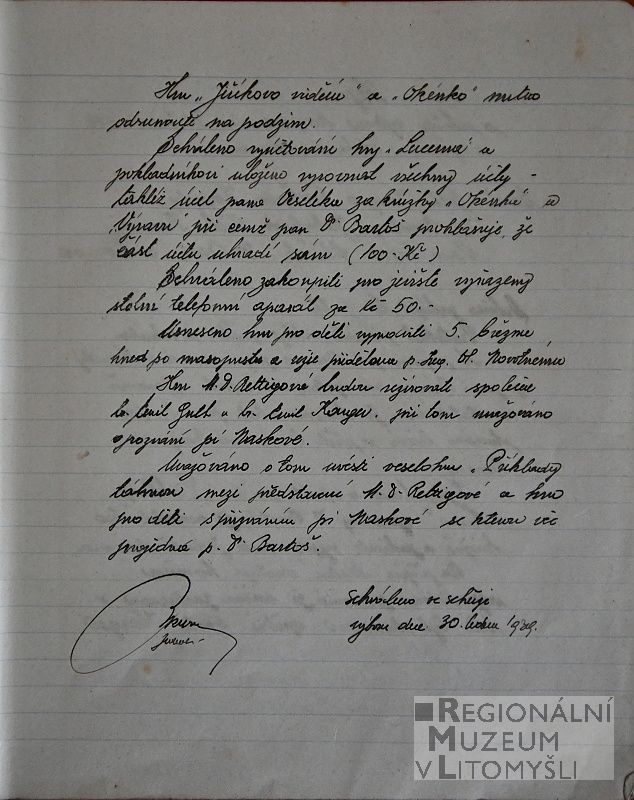 Hru „Jiříkovo vidění“ a „Okénko“ nutno
odsunouti na podzim.
Schváleno vyúčtování hry „Lucerna“ a
pokladníkovi uloženo vyrovnat všechny účty -
taktéž účet pana Veselíka za knížky „Okénko“ a
„Výprava“ při čemž pan Dr Bartoš prohlašuje, že
část účtu uhradí sám (100.- Kč)
Schváleno zakoupiti pro jeviště vyřazený
stolní telefonní aparát za Kč 50.-
Usneseno hru pro děti vypraviti 5. března
hned po masopustu a režie přidělena p. Novotnému
Hru M. D. Rettigové budou režírovati společně
br. Emil Gult a br. Emil při tom uvažováno
o pozvání pí Naskové.
Uvažováno o tom uvésti veselohru „Příklady
táhnou“ mezi představení M. D. Rettigové a hru
pro děti s pí Naskové se kterou věc
projedná p. Dr Bartoš.
Schváleno ve schůzi
výboru dne 30. ledna 1939.
REGIONÁLNÍ
MUZEUM
V LITOMYŠLI